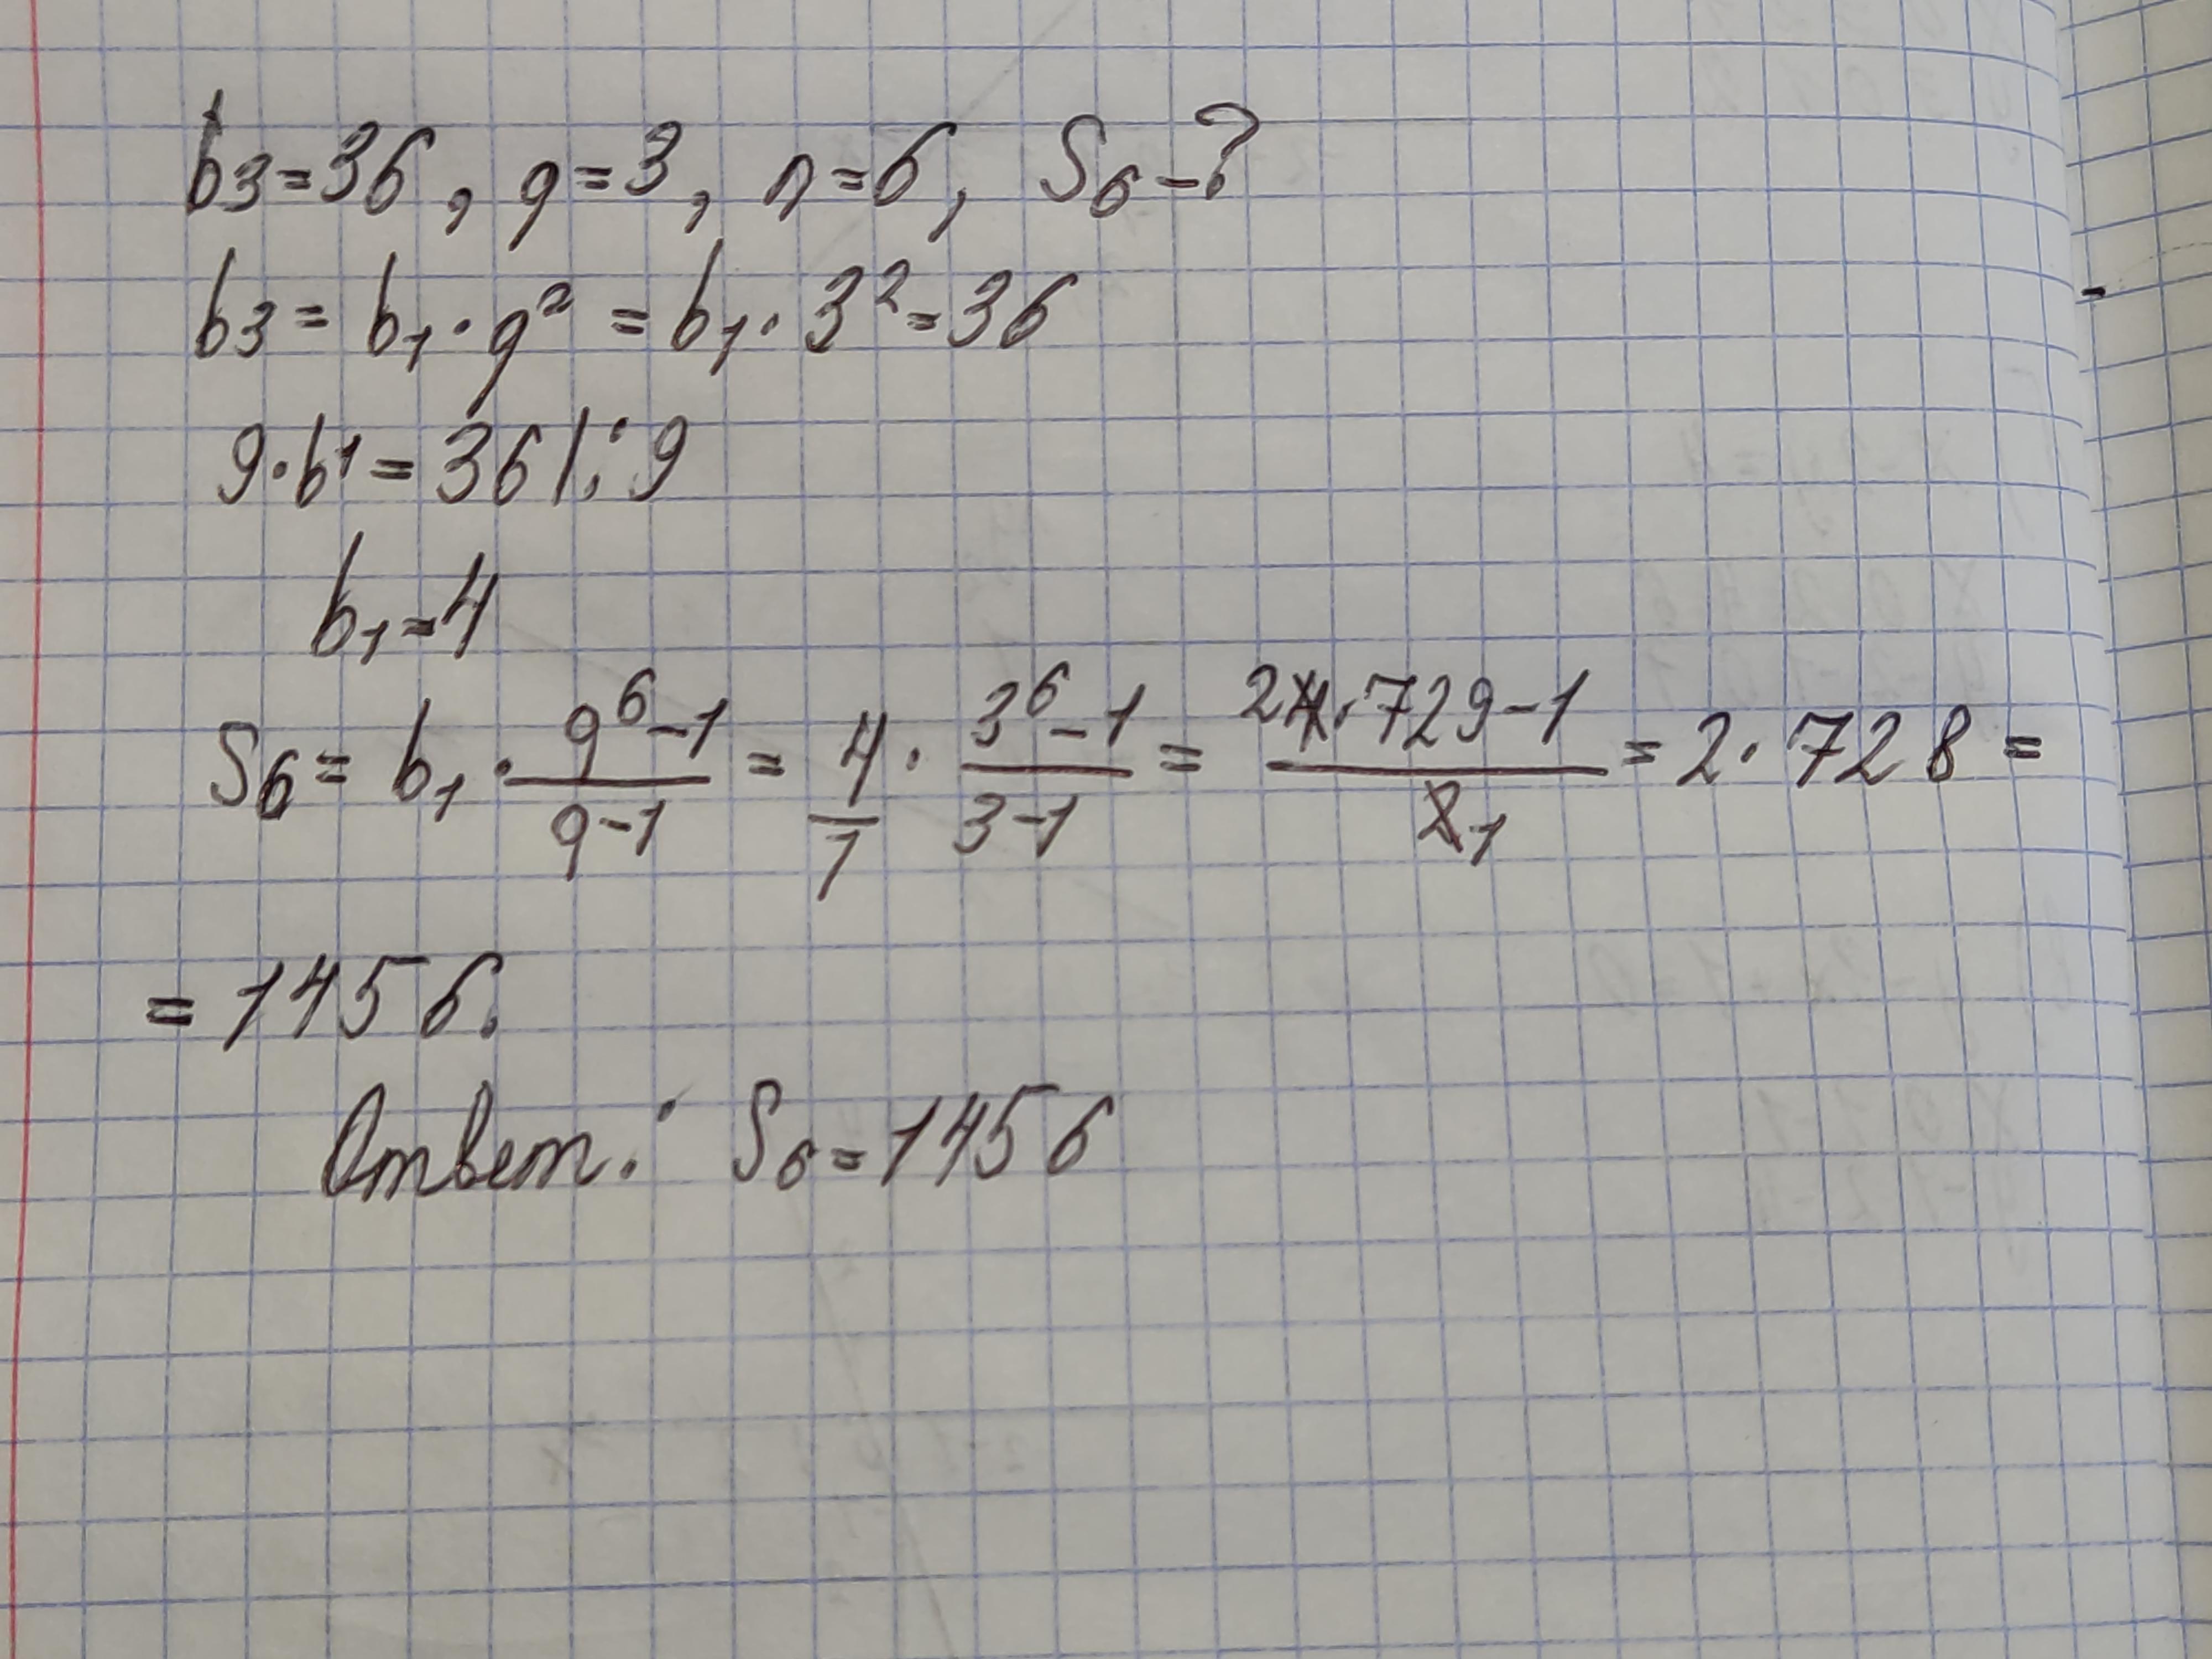 b₃=36, q=3, n=6, S₆-?
b₃ = b₁·q² = b₁·3²=36
9·b1 = 36 |:9
b₁=4
S₆ = b₁ · (q⁶-1)/(q-1) = 4/1 · (3⁶-1)/(3-1) = (2 4·729-1)/(2 1) = 2·728 =
= 1456.
Ответ: S₆=1456